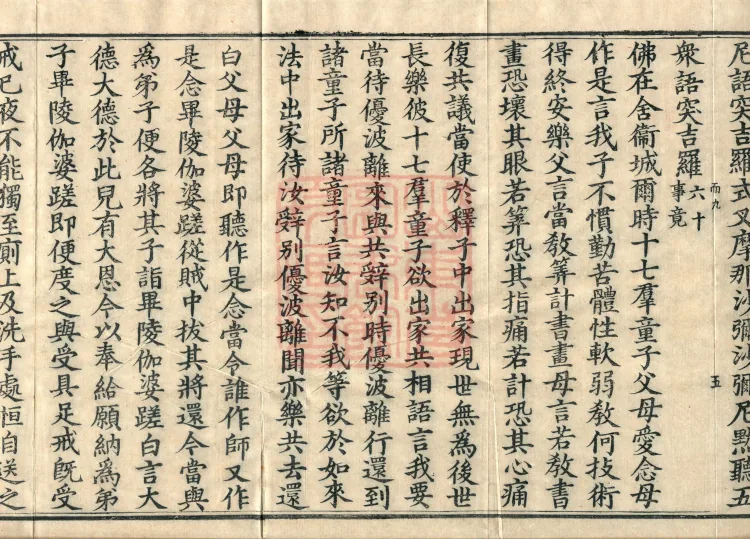 尼語突吉羅式叉摩那沙彌沙彌尼默聽五
而九
五
衆語突吉羅六十事竟
佛在舍衞城爾時十七羣童子父母愛念母
作是言我子不慣勤苦體性軟弱敎何技術
得終安樂父言當敎筭計書畫母言若敎書
畫恐壞其眼若筭恐其指痛若計恐其心痛
復共議當使於釋子中出家現世無爲後世
長樂彼十七羣童子欲出家共相語言我要
當待優波離來與共辤別時優波離行還到
諸童子所諸童子言汝知不我等欲於如來
法中出家待汝辤別優波離聞亦樂共去還
白父母父母即聽作是念當令誰作師又作
是念畢陵伽婆蹉從賊中拔其將還今當與
爲弟子便各將其子詣畢陵伽婆蹉白言大
德大德於此兒有大恩今以奉給願納爲弟
子畢陵伽婆蹉即便度之與受具足戒旣受
戒巳夜不能獨至廁上及洗手處恒自送之